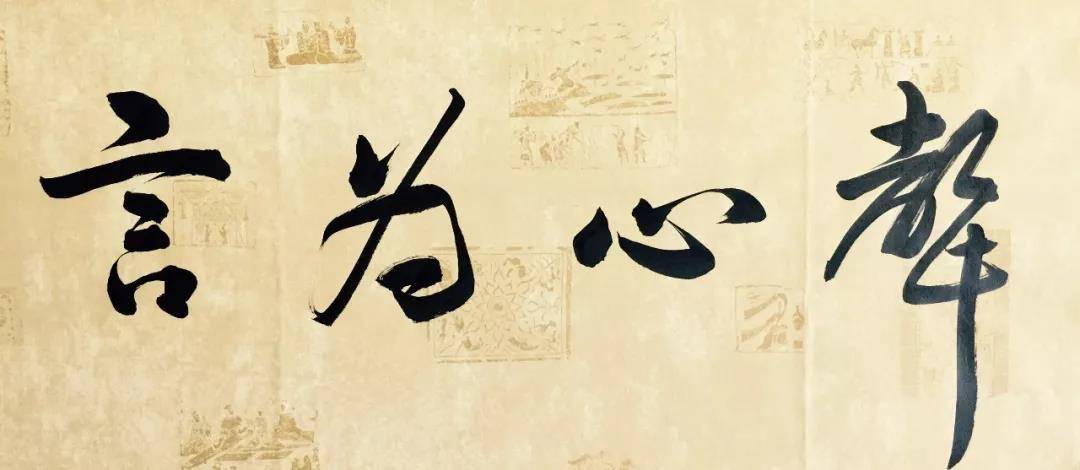 言为心聲